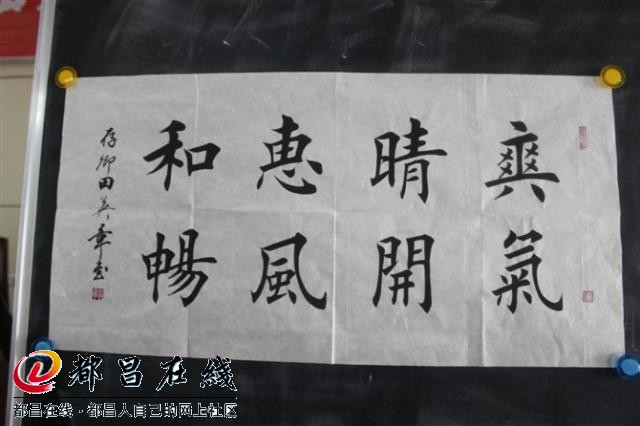 爽氣
晴開
惠風
和暢
存卿田英章書
都昌在線
都昌在线·都昌人自己的网上社区